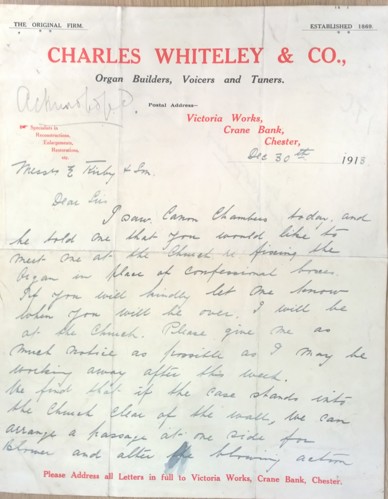 THE ORIGINAL FIRM.
ESTABLISHED 1869.
CHARLES WHITELEY & CO.,
Organ Builders, Voicers and Tuners.
Postal Address—
Victoria Works,
Crane Bank,
Chester,
Specialists in
Reconstructions,
Enlargements,
Renovations,
etc.
Dec 30th 1913
Messrs E Kirby & Son
Dear Sir
I saw Canon Chambers today, and
he told me that you would like to
meet me at the Church re fixing the
Organ in place of confessional boxes.
If you will kindly let me know
when you will be over. I will be
at the Church. Please give me as
much notice as possible as I may be
working away after this week.
the first that if the case stands into
the Church clear of the wall, we can
arrange a passage at one side for
blower and alter the blowing action
Please Address all Letters in full to Victoria Works, Crane Bank, Chester.